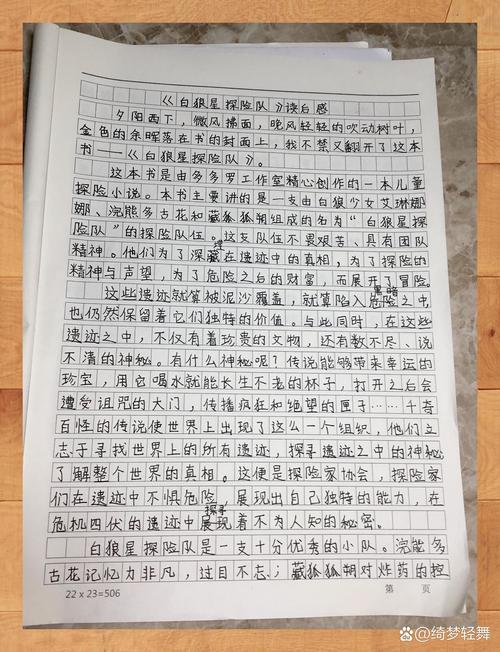 《白狼星探险队》读后感
夕阳西下，微风拂面，晚风轻轻的吹动树叶，
金色的余晖落在书的封面上，我不禁又翻开了这本
书——《白狼星探险队》。
这本书是由多多罗工作室精心创作的一本儿童
探险小说。本书主要讲的是一支由白狼少女艾琳娜
娜、浣熊多古花和藏狐狐朔组成的名为“白狼星探
险队”的探险队伍。这支队伍不畏艰苦、具有团队
精神。他们为了深埋在遗迹中的真相，为了探险的
精神与声望，为了危险之后的财富，而展开了冒险。
这些遗迹就算被泥沙覆盖，就算陷入黑暗之中
也仍然保留着它们独特的价值。与此同时，在这些
遗迹之中，不仅有着珍贵的文物，还有数不尽、说
不清的神秘。有什么神秘呢？传说能够带来幸运的
珍宝，用它喝水就能长生不老的杯子，打开之后会
遭受诅咒的大门，传播疯狂和绝望的匣子……千奇
百怪的传说使世界上出现了这么一个组织，他们立
志于寻找世界上的所有遗迹，探寻遗迹之中的神秘
了解整个世界的真相。这便是探险家协会，探险家
们在遗迹中不惧危险，展现出自己独特的能力，在
危机四伏的遗迹中探寻着不为人知的秘密。
白狼星探险队是一支十分优秀的小队。浣能多
古花记忆力非凡，过目不忘；藏狐狐朔对炸药的控
22 x 23=506
第 页
百家号@绮梦轻舞